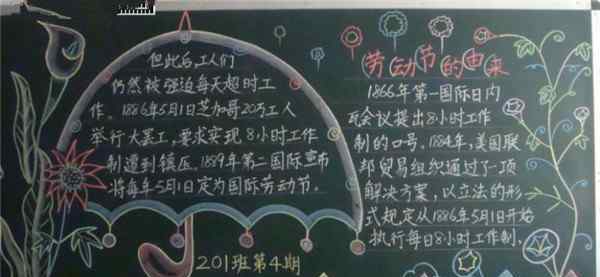 劳动节的由来
1866年第一国际日内
瓦会议提出8小时工作
制的口号。1884年,美国联
邦贸易组织通过了一项
解决方案,以立法的形
式规定从1886年5月1日开始
执行每日8小时工作制。
但此后,工人们
仍然被强迫每天超时工
作。1886年5月1日芝加哥20万工人
举行大罢工,要求实现8小时工作
制遭到镇压。1889年第二国际宣布
将每年5月1日定为国际劳动节。
201班第4期